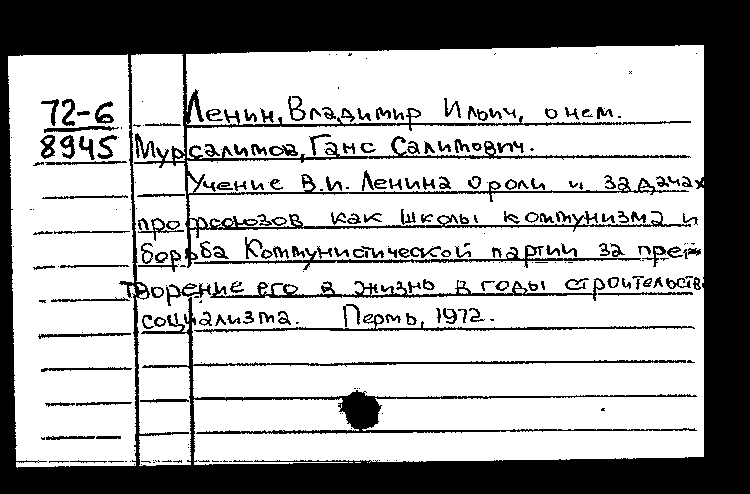 72-6 Ленин, Владимир Ильич, о нем.
8945 Мурсалимов, Ганс Салимович.
Учение В.И. Ленина о роли и задачах
профсоюзов как школы коммунизма и
борьба Коммунистической партии за прет-
творение его в жизнь в годы строительства
социализма. Пермь, 1972.